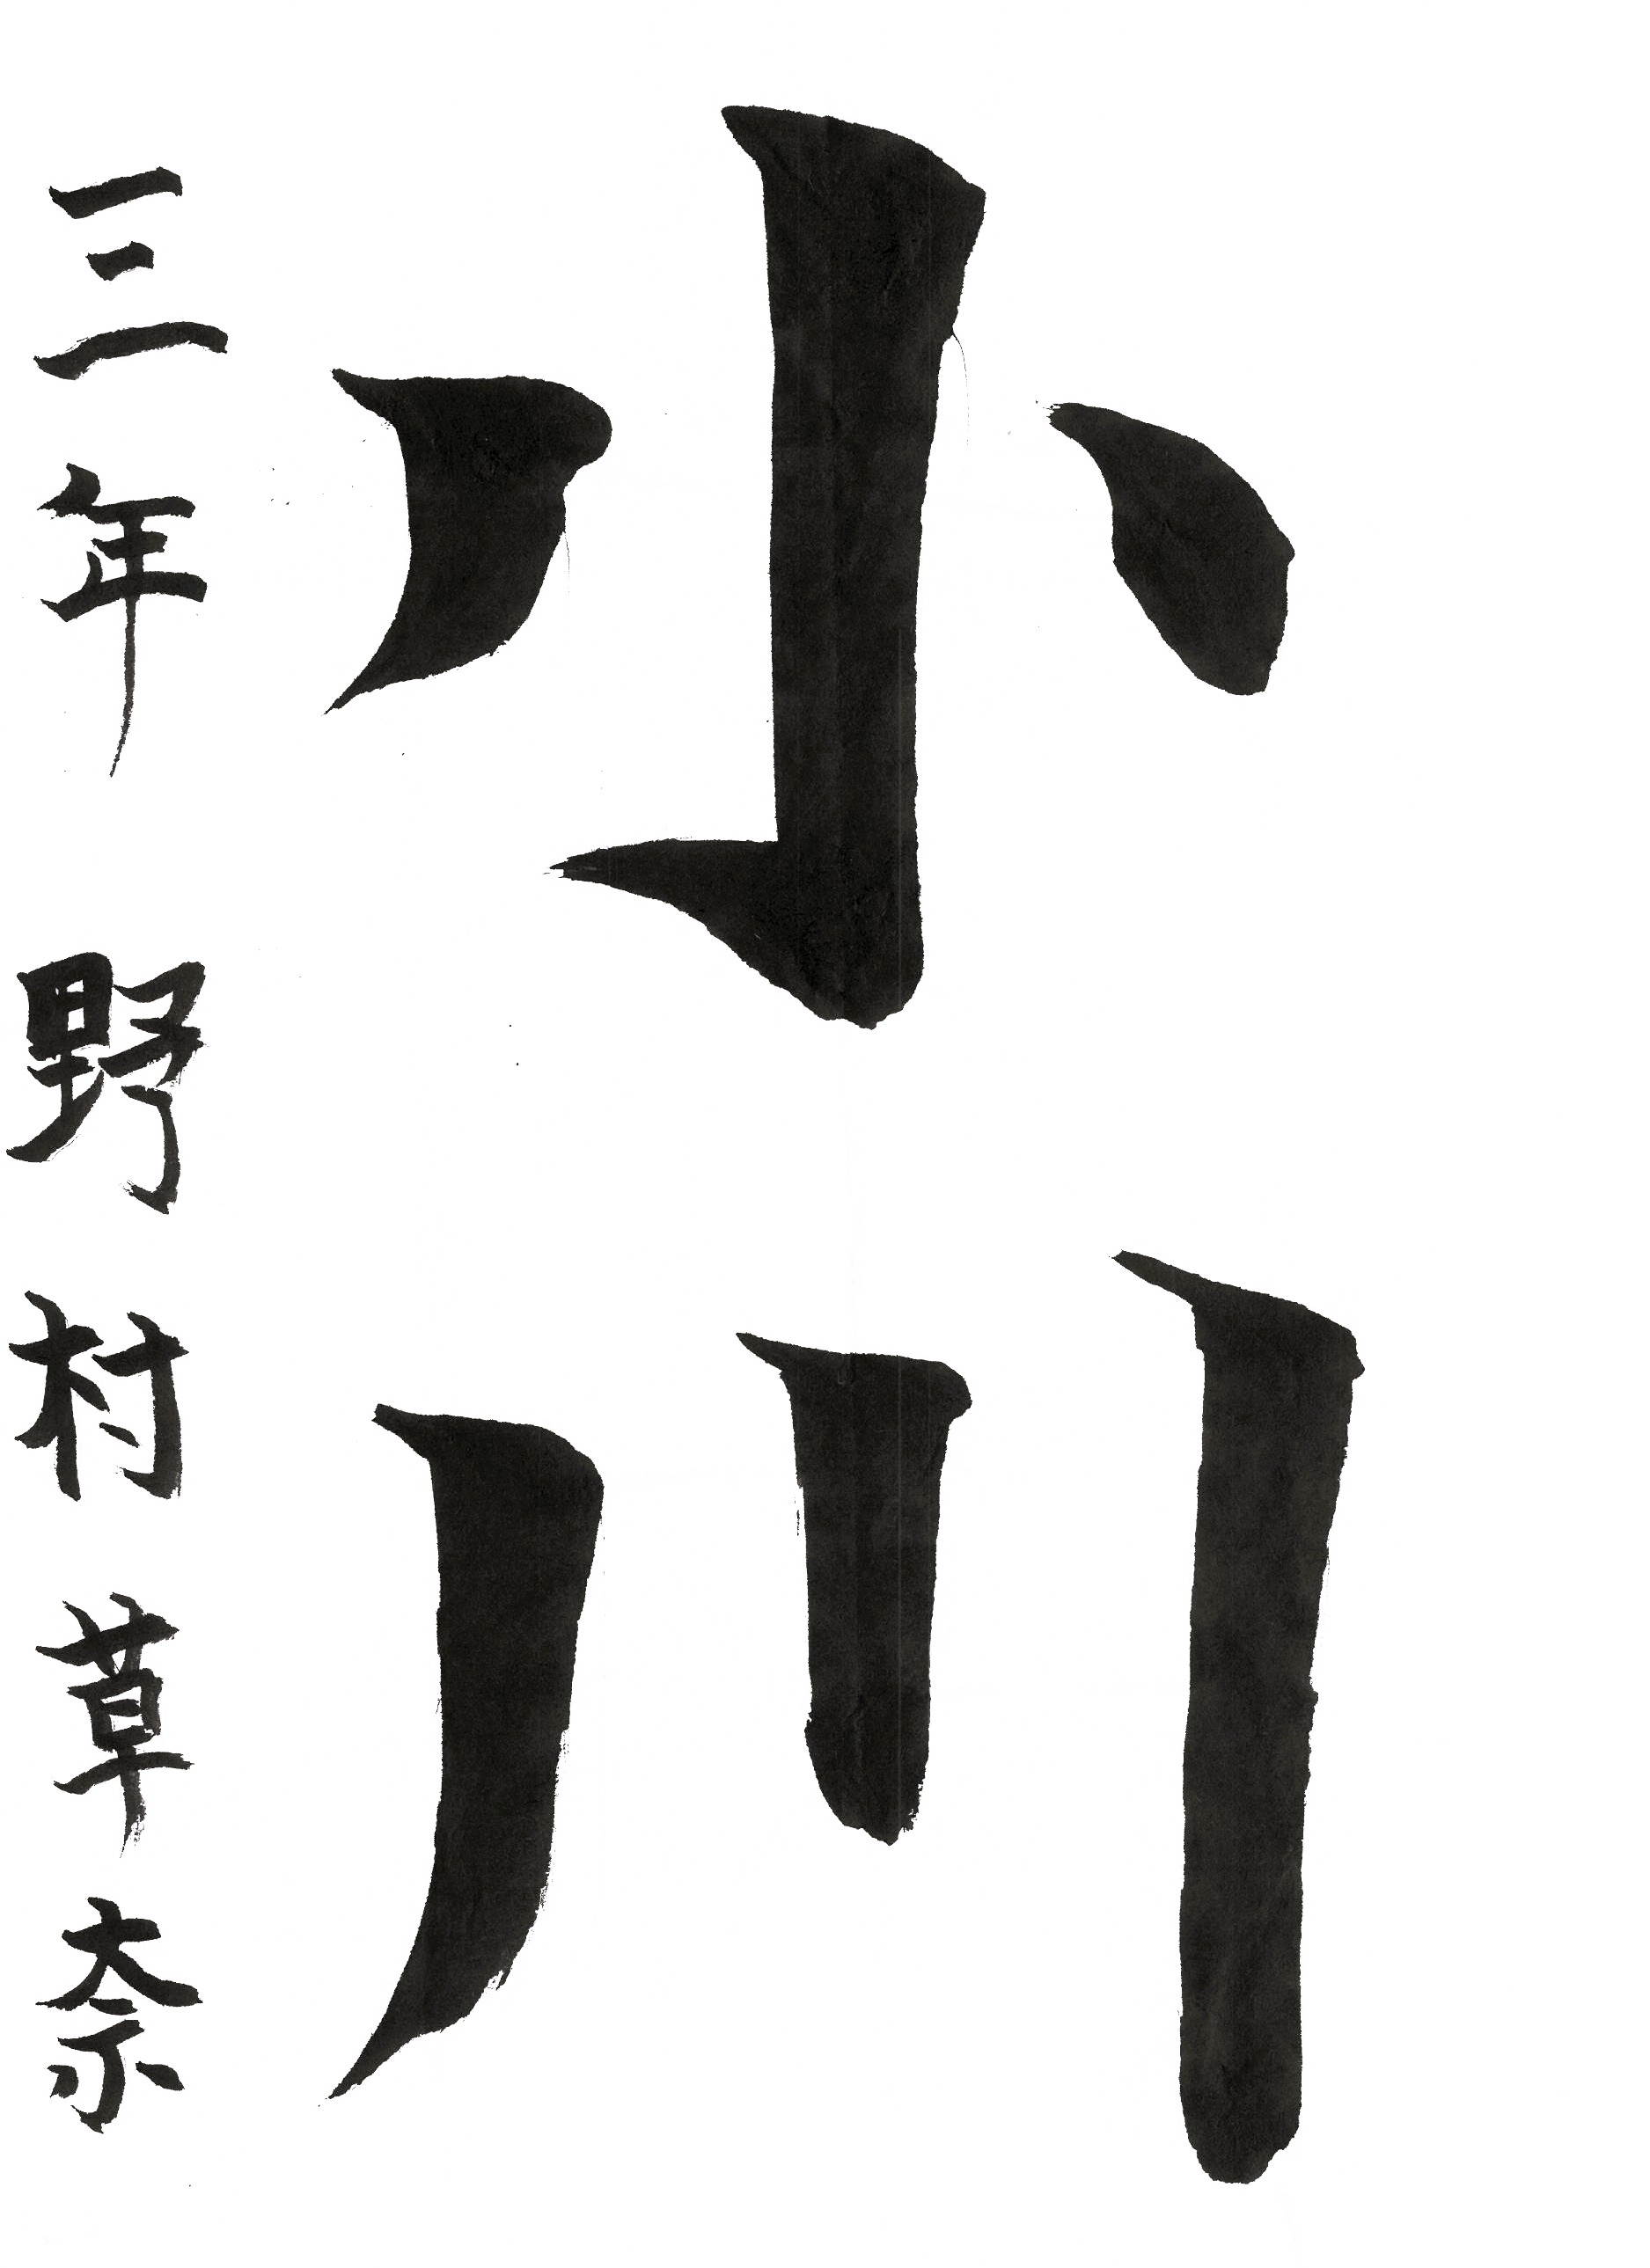 小川
三年 野村草奈